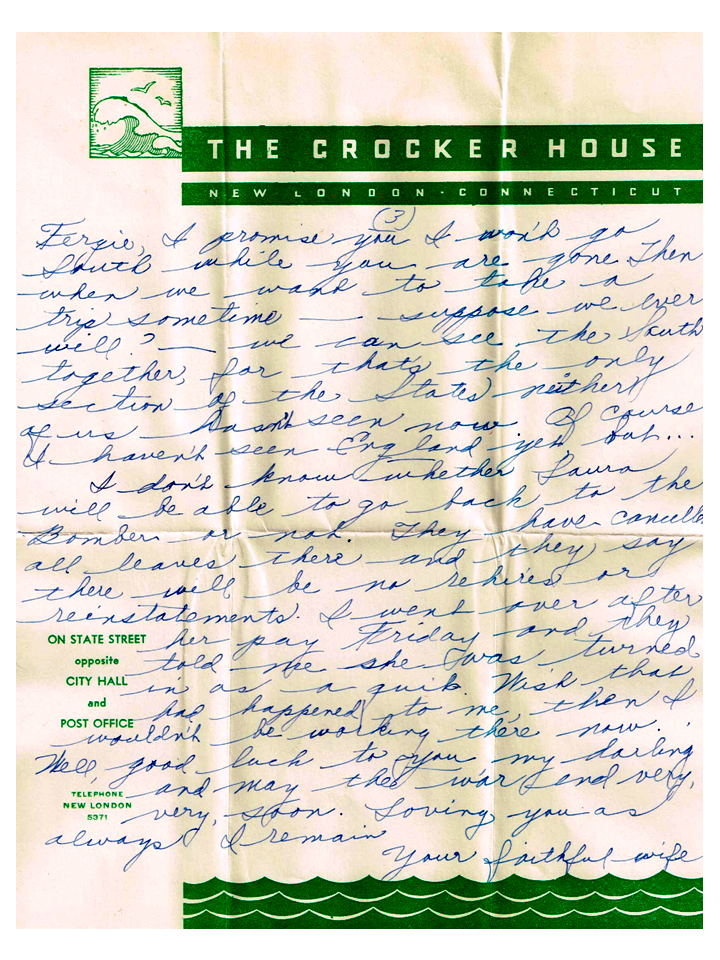 THE CROCKER HOUSE
NEW LONDON · CONNECTICUT
(3)
Fergie, I promise you I won't go
South while you are gone. Then
when we want to take a
trip sometime — suppose we ever
will? — we can see the South
together, for that's the only
section of the States neither
of us hasn't seen now. Of course
I haven't seen England yet but...
I don't know whether Laura
will be able to go back to the
Bomber or not. They have cancelle
all leaves there and they say
there will be no rehires or
reinstatements. I went over after
her pay Friday and they
told me she was turned
in as a quit. Wish that
had happened to me, then I
wouldn't be working there now.
Well, good luck to you my darling
and may this war end very,
very, soon. Loving you as
always I remain
Your faithful wife
ON STATE STREET
opposite
CITY HALL
and
POST OFFICE
TELEPHONE
NEW LONDON
5371